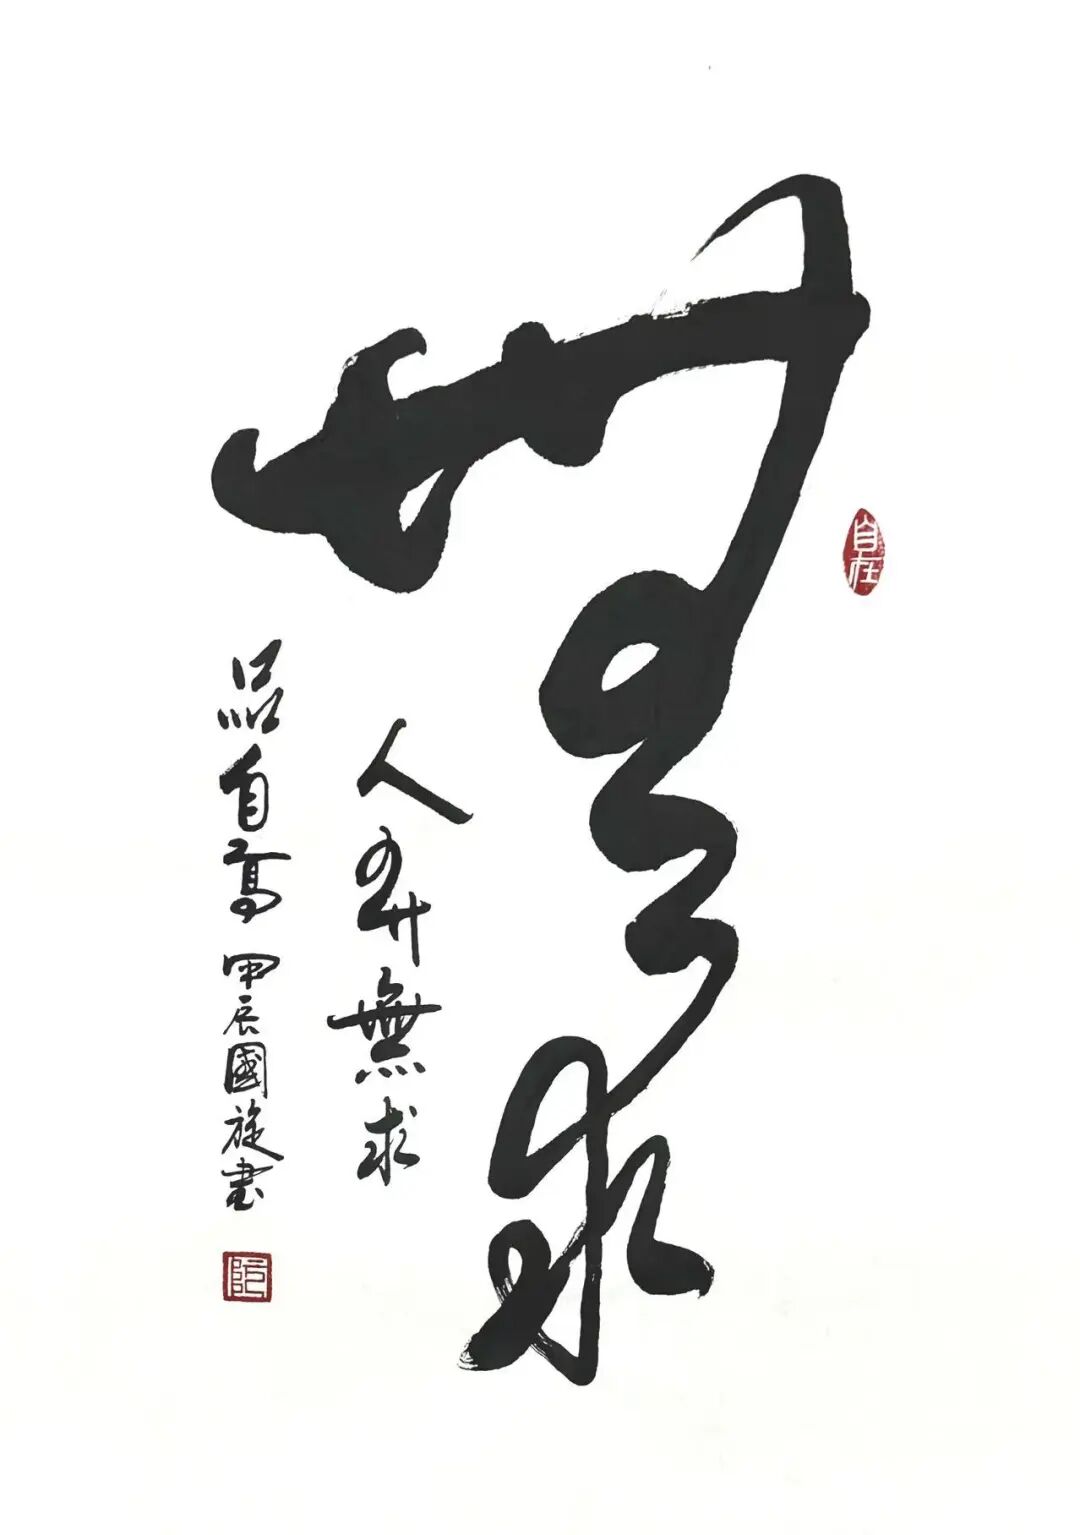 無求
自在
人無求
品自高 甲辰國旋書